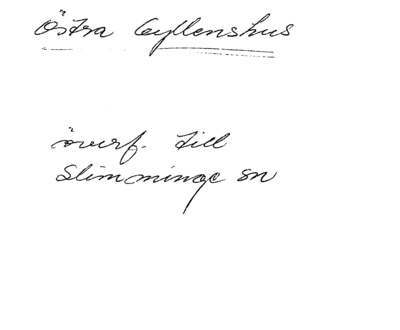 Östra Gyllenshus
överf. till
Slimminge sn